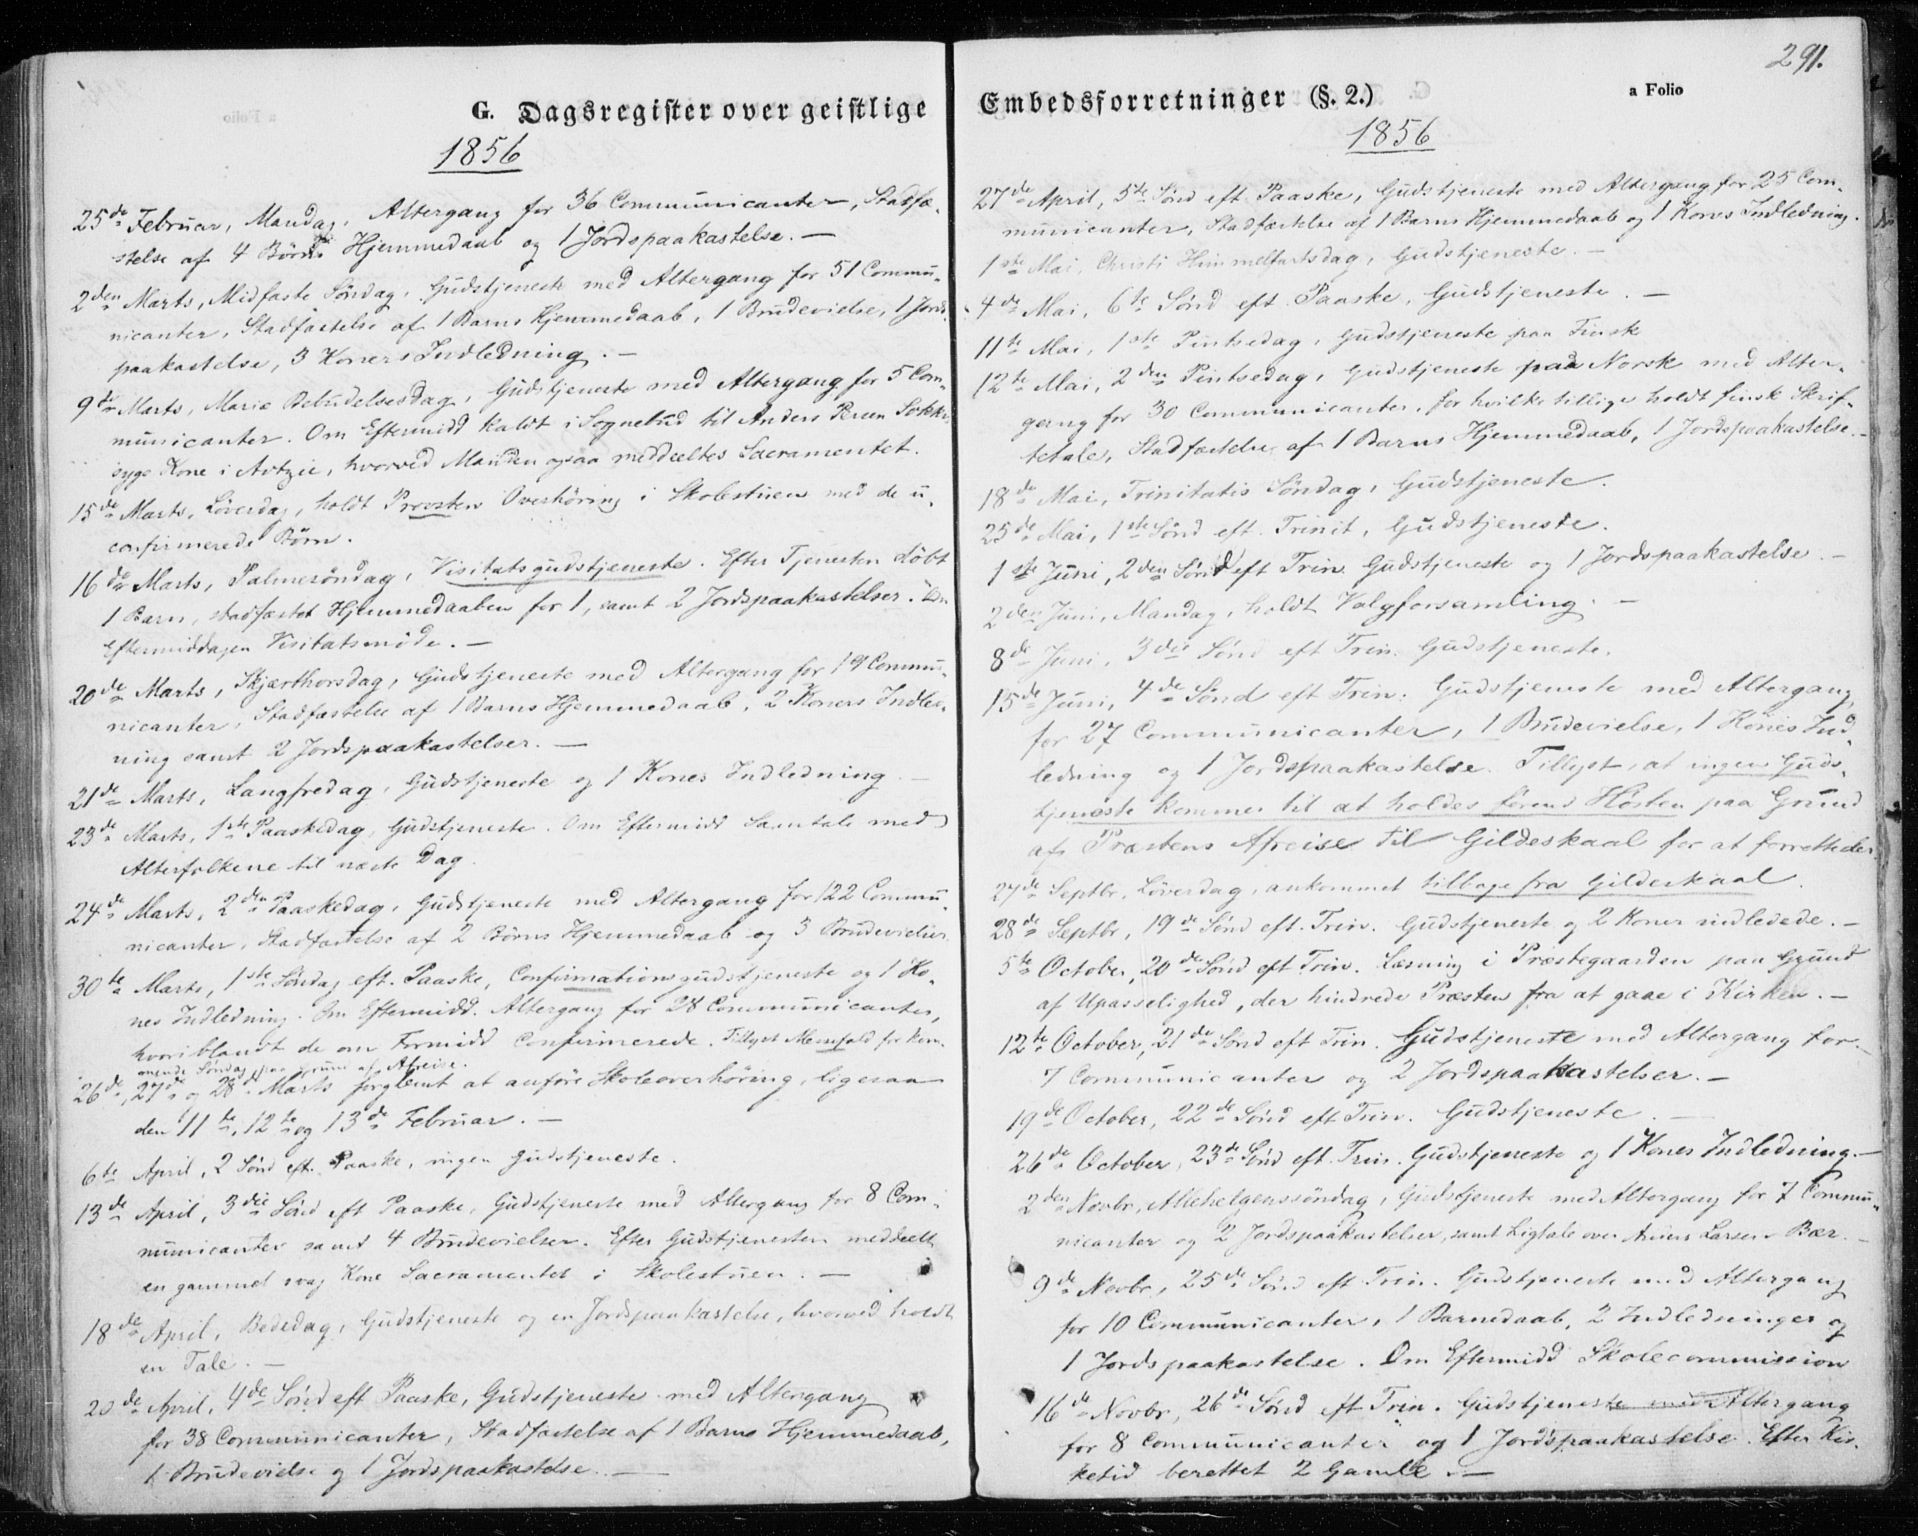 G. Dagsregister over geistlige
1856
25de Februar, Mandag, Altergang for 36 Communicanter, Stadfæ-
stelse af 4 Børns Hjemmedaab og 1 Jordspaakastelse. —
2den Marts, Midfaste Søndag, Gudstjeneste med Altergang for 51 Commu-
nicanter, Stadfæstelse af 1 Barns Hjemmedaab, 1 Brudevielse, 1 Jords-
paakastelse, 3 Koners Indledning. —
9de Marts, Mariæ Bebudelsesdag, Gudstjeneste med Altergang for 5 Com-
municanter. Om Eftermidd kaldt i Sognebud til Anders Persen
syge Kone i, hvorved Manden ogsaa meddeeltes Sacramentet.
15de Marts, Løverdag, holdt Provsten Overhøring i Skolestuen med de u-
confirmerede Børn.
16de Marts, Palmesøndag, Visitatsgudstjeneste. Efter Tjenesten døbt
1 Barn, stadfæstet Hjemmedaaben for 1, samt 2 Jordspaakastelser. Om
Eftermiddagen Visitatsmøde. —
20de Marts, Skjærthorsdag, Gudstjeneste med Altergang for 19 Commu-
nicanter, Stadfæstelse af 1 Barns Hjemmedaab, 2 Koners Indled-
ning samt 2 Jordspaakastelser. —
21de Marts, Langfredag, Gudstjeneste og 1 Kones Indledning. —
23de Marts, 1ste Paaskedag, Gudstjeneste. Om Eftermidd Samtale med
Alterfolkene til næste Dag.
24de Marts, 2den Paaskedag, Gudstjeneste med Altergang for 122 Commu-
nicanter, Stadfæstelse af 2 Børns Hjemmedaab og 3 Brudevielser
30te Marts, 1ste Søndag eft. Paaske, Confirmationsgudstjeneste og 1 Ko-
nes Indledning. Om Eftermidd. Altergang for 28 Communicanter,
hvoriblandt de om Formidd Confirmerede. Tillyst Messefald for kom-
mende Søndag paa Grund af Afreise.
26de, 27de og 28de Marts forglemt at anføre Skoleoverhøring, ligesaa
den 11te, 12te og 13de Februar. —
6te April, 2 Sønd eft. Paaske, ingen Gudstjeneste.
13de April, 3die Sønd eft Paaske, Gudstjeneste med Altergang for 8 Com-
municanter samt 4 Brudevielser. Efter Gudstjenesten meddeelt
en gammel svag Kone Sacramentet i Skolestuen. —
18de April, Bededag, Gudstjeneste og en Jordspaakastelse, hvorved holdt
en Tale. —
20de April, 4de Sønd eft Paaske, Gudstjeneste med Altergang
for 38 Communicanter, Stadfæstelse af 1 Barns Hjemmedaab,
1 Brudevielse og 1 Jordspaakastelse. —
291.
Embedsforretninger (§. 2.)
a Folio
1856
27de April, 5te Sønd eft. Paaske, Gudstjeneste med Altergang for 25 Com-
municanter, Stadfæstelse af 1 Barns Hjemmedaab og 1 Kones Indledning.
1ste Mai, Christi Himmelfartsdag, Gudstjeneste. —
4de Mai, 6te Sønd eft. Paaske, Gudstjeneste. —
11te Mai, 1ste Pintsedag, Gudstjeneste paa Finsk
12te Mai, 2den Pintsedag, Gudstjeneste paa Norsk med Alter-
gang for 30 Communicanter, for hvilke tillige holdt finsk Skrif-
tetale, Stadfæstelse af 1 Barns Hjemmedaab, 1 Jordspaakastelse. —
18de Mai, Trinitatis Søndag, Gudstjeneste.
25de Mai, 1ste Sønd eft. Trinit, Gudstjeneste.
1ste Juni, 2den Sønd eft Trin. Gudstjeneste og 1 Jordspaakastelse. —
2den Juni, Mandag, holdt Valgforsamling. —
8de Juni, 3die Sønd eft Trin. Gudstjeneste.
15de Juni, 4de Sønd eft Trin. Gudstjeneste med Altergang
for 27 Communicanter, 1 Brudevielse, 1 Kones Ind-
ledning og 1 Jordspaakastelse. Tillyst, at ingen Guds-
tjeneste kommer til at holdes førend Høsten paa Grund
af Præstens Afreise til Gildeskaal for at forrette der.
27de Septbr, Løverdag, ankommet tilbage fra Gildeskaal.
28de Septbr, 19de Sønd eft. Trin. Gudstjeneste og 2 Koner indledede. —
5te October, 20de Sønd eft Trin. Læsning i Præstegaarden paa Grund
af Upasselighed, der hindrede Præsten fra at gaae i Kirken. —
12te October, 21de Sønd eft Trin. Gudstjeneste med Altergang for
7 Communicanter og 2 Jordspaakastelser. —
19de October, 22de Sønd eft Trin. Gudstjeneste. —
26de October, 23de Sønd eft. Trin. Gudstjeneste og 1 Kones Indledning. —
2den Novbr, Allehelgenssøndag, Gudstjeneste med Altergang for 7 Commu-
nicanter og 2 Jordspaakastelser, samt Ligtale over Larsen Bær. —
9de Novbr, 25de Sønd eft Trin. Gudstjeneste med Altergang
for 10 Communicanter, 1 Barnedaab, 2 Indledninger og
1 Jordspaakastelse. Om Eftermidd Skolecommission
16de Novbr, 26de Sønd eft Trin. Gudstjeneste med Altergang
for 8 Communicanter og 1 Jordspaakastelse. Efter Kir-
ketid berettet 2 Gamle. —